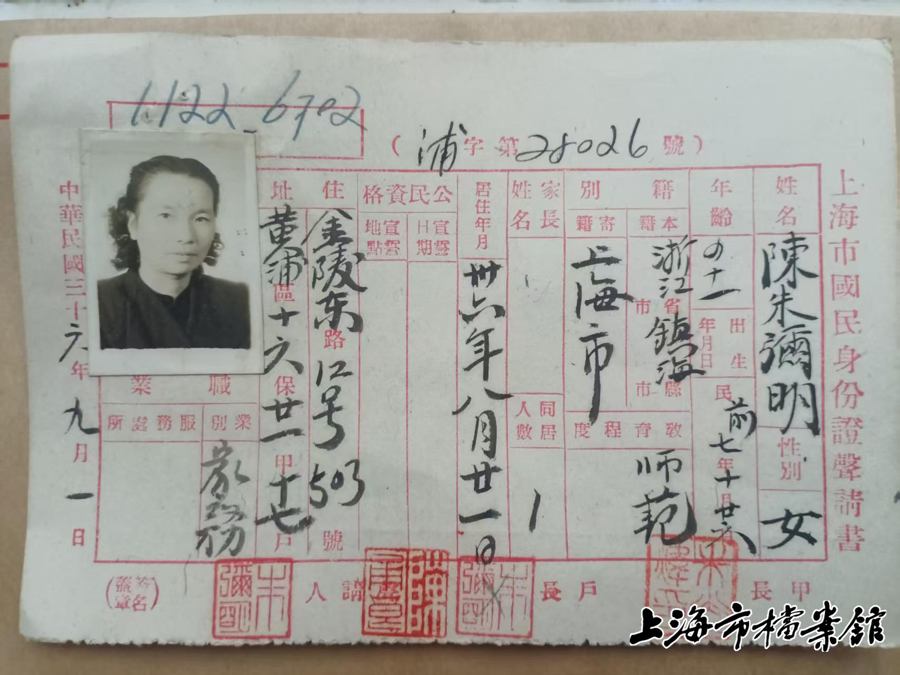 1122-6702
(浦字第28026號)
上海市國民身份證聲請書
姓名 陳朱彌明 性別 女
年齡 四十一 出生年月日 民前七年十月廿六
籍別 本籍 浙江省市鎮海縣市
寄籍 上海市
教育程度 师范
家長姓名
同居人數 1
居住年月 卅六年八月廿一日
公民資格 宣誓日期
宣誓地點
住址 金陵东路12号503號
黄浦區十六保廿一甲十七戶
職業 業別 家務
服務處所
中華民國三十六年九月一日
甲長
戶長 朱彌明
聲請人
朱彌明
(簽名蓋章)
上海市檔案館